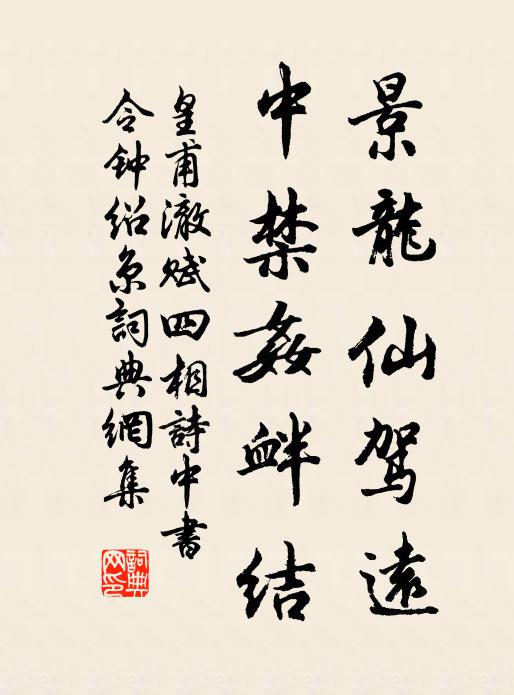 景龍仙驾遠
中禁姦衅结
皇甫澈赋四相詩中書
令钟绍京詞典網集
詞典网印